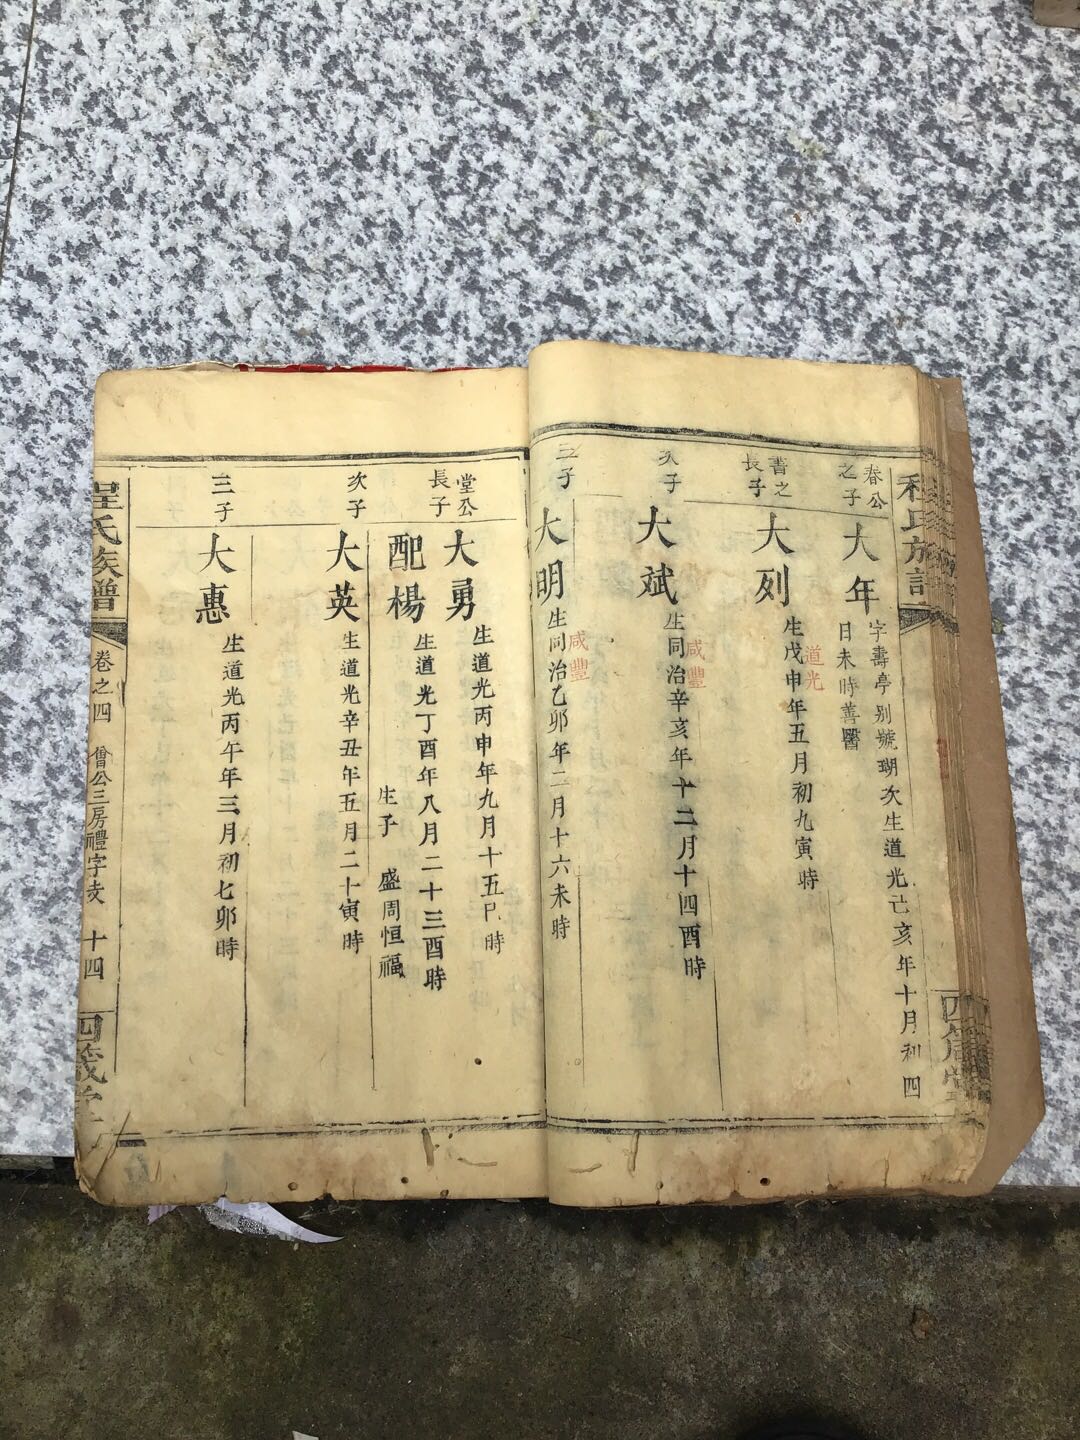 春公
之子
大年
字壽亭别號瑚次生道光亥年十月初四
日未時善醫
書之
長子
大列
道光
生戊申年五月初九寅時
次子
大斌
咸豐
生同治辛亥年十二月十四酉時
三子
大明
咸豐
生同治乙卯年二月十六未時
堂公
長子
大勇
生道光丙申年九月十五時
配楊
生道光丁酉年八月二十三酉時
生子 盛周恒福
次子
大英
生道光辛丑年五月二十寅時
三子
大惠
生道光丙午年三月初七卯時
程氏族譜
卷之四
僧公三房禮字支
十四
四箴堂